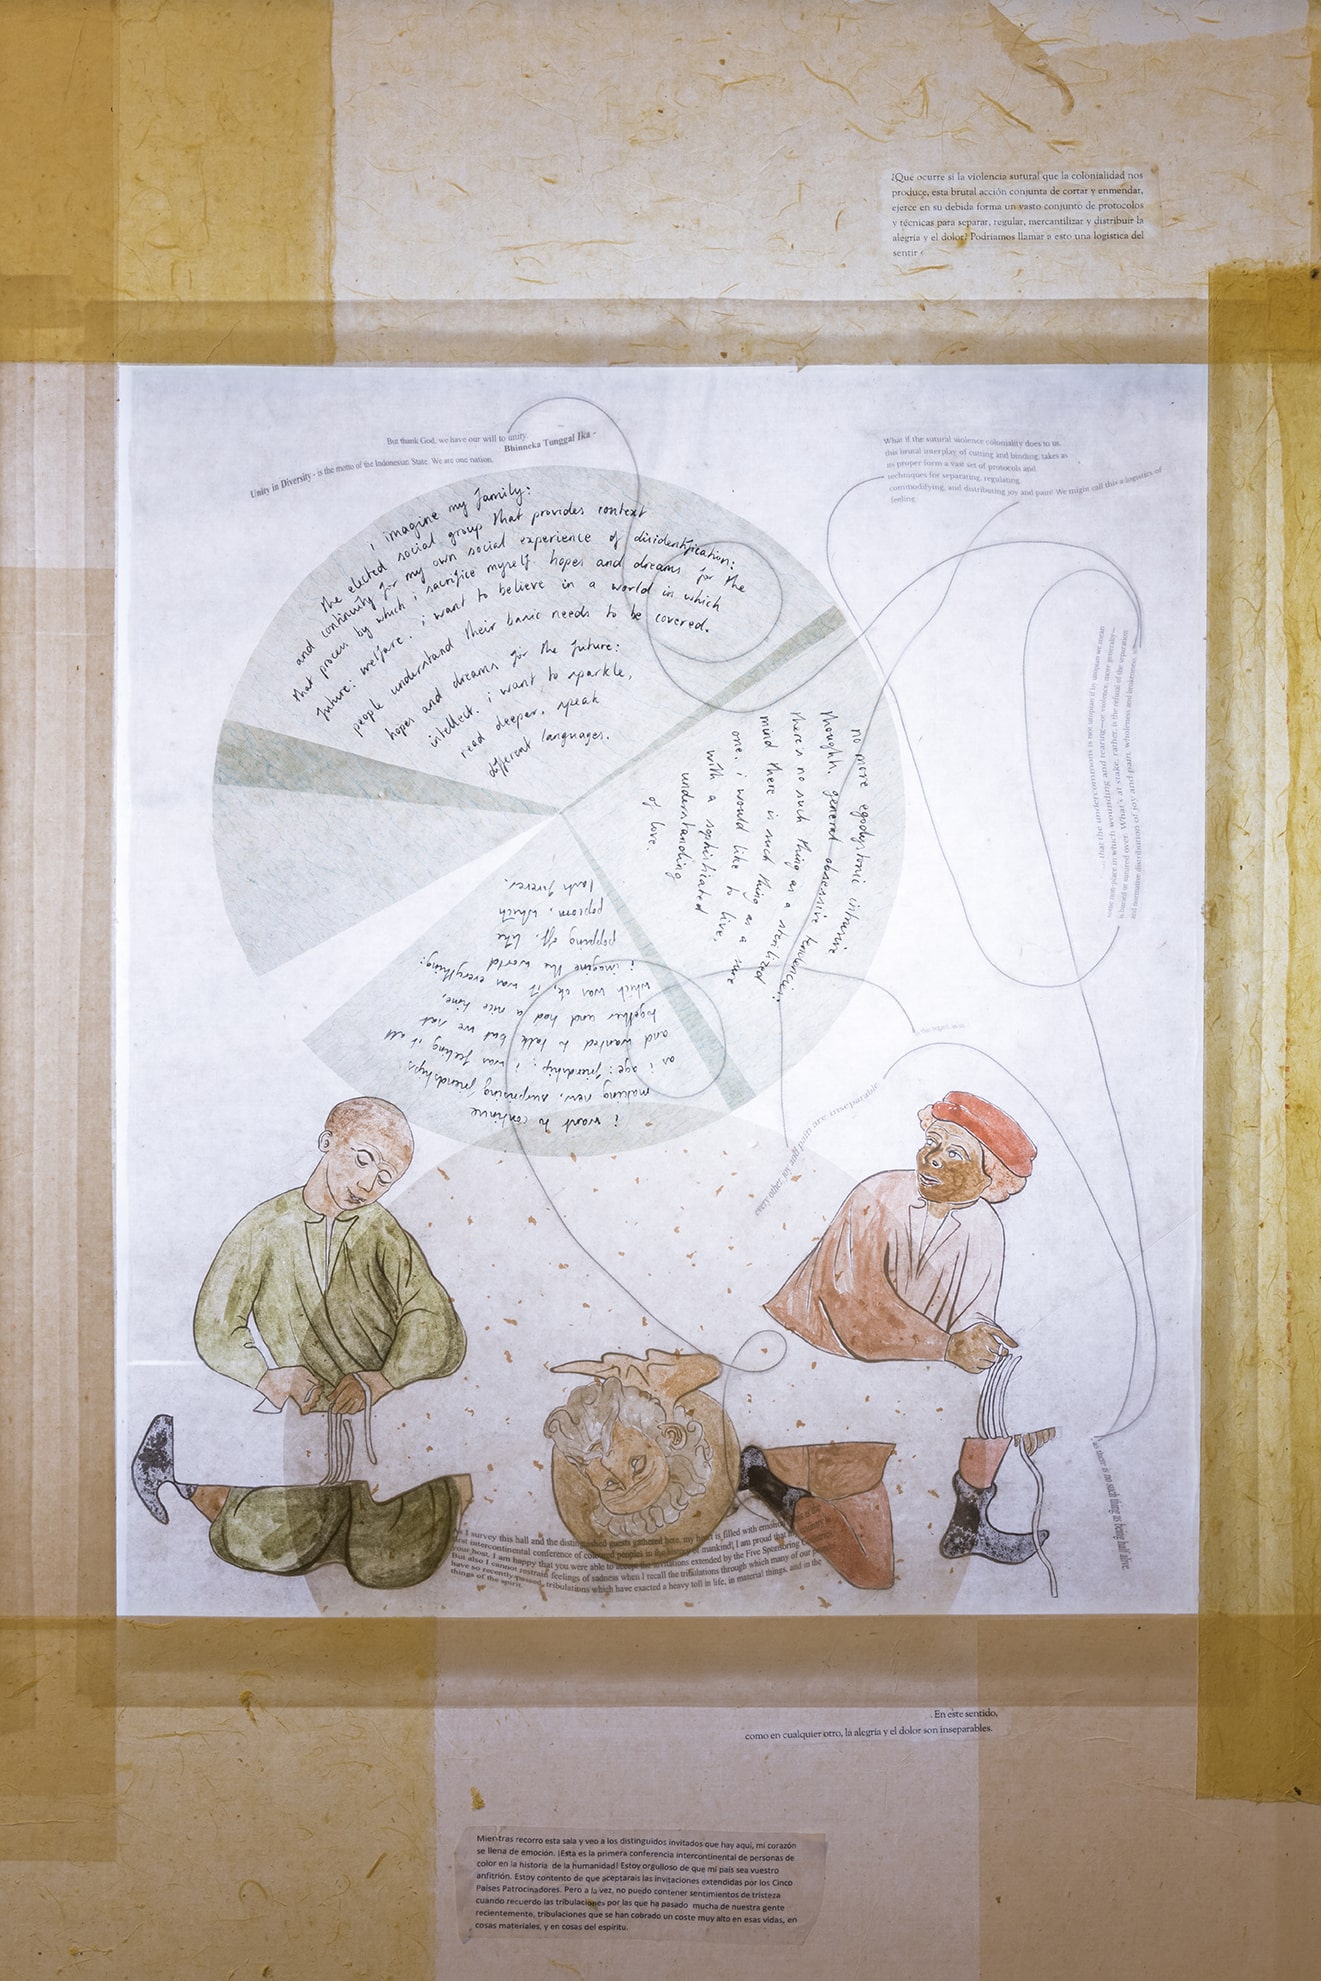 ¿Que ocurre si la violencia sutural que la colonialidad nos
produce, esta brutal acción conjunta de cortar y enmendar,
ejerce en su debida forma un vasto conjunto de protocolos
y técnicas para separar, regular, mercantilizar y distribuir la
alegría y el dolor? Podríamos llamar a esto una logística del
sentir
But thank God, we have our will to unity.
Bhinneka Tunggal Ika -
Unity in Diversity - is the motto of the Indonesian State. We are one nation.
What if the sutural violence coloniality does to us,
this brutal interplay of cutting and binding, takes as
its proper form a vast set of protocols and
techniques for separating, regulating,
commodifying, and distributing joy and pain? We might call this a logistics of
feeling.
i imagine my family:
the elected social group that provides context
and continuity for my own social experience of disidentification:
that process by which i sacrifice myself. hopes and dreams for the
future: welfare. i want to believe in a world in which
people understand their basic needs to be covered.
hopes and dreams for the future:
intellect. i want to sparkle,
read deeper, speak
different languages.
no more egodystonic intrusive
though, general obsessive tendencies:
there's no such thing as a sterilized
mind there is such thing as a sure
one. i would like to live,
with a sophisticated
understanding
of love.
i want to continue
making new, surprising friendships
as i age: friendship: i was feeling it all
and wanted to talk but we sat
together and had a nice time,
which was ok, it was everything:
i imagine the world
popping off, like
popcorn, which
lasts forever.
that the undercommons is not utopian if by utopian we mean
some non-place in which wounding and tearing—or violence, more generally—
is buried or sutured over. What's at stake, rather, is the refusal of the separation
and normative distribution of joy and pain, wholeness and brokenness.
every other, joy and pain are inseparable
there is no such thing as being half alive
As I survey this hall and the distinguished guests gathered here, my heart is filled with emotion.
first intercontinental conference of colored peoples in the history of mankind! I am proud that my country is
your host. I am happy that you were able to accept the invitations extended by the Five Sponsoring Countries.
But also I cannot restrain feelings of sadness when I recall the tribulations through which many of our peoples
have so recently passed, tribulations which have exacted a heavy toll in life, in material things, and in the
things of the spirit.
. En este sentido,
como en cualquier otro, la alegría y el dolor son inseparables.
Mientras recorro esta sala y veo a los distinguidos invitados que hay aquí, mi corazón
se llena de emoción. ¡Esta es la primera conferencia intercontinental de personas de
color en la historia de la humanidad! Estoy orgulloso de que mi país sea vuestro
anfitrión. Estoy contento de que aceptarais las invitaciones extendidas por los Cinco
Países Patrocinadores. Pero a la vez, no puedo contener sentimientos de tristeza
cuando recuerdo las tribulaciones por las que ha pasado mucha de nuestra gente
recientemente, tribulaciones que se han cobrado un coste muy alto en esas vidas, en
cosas materiales, y en cosas del espíritu.